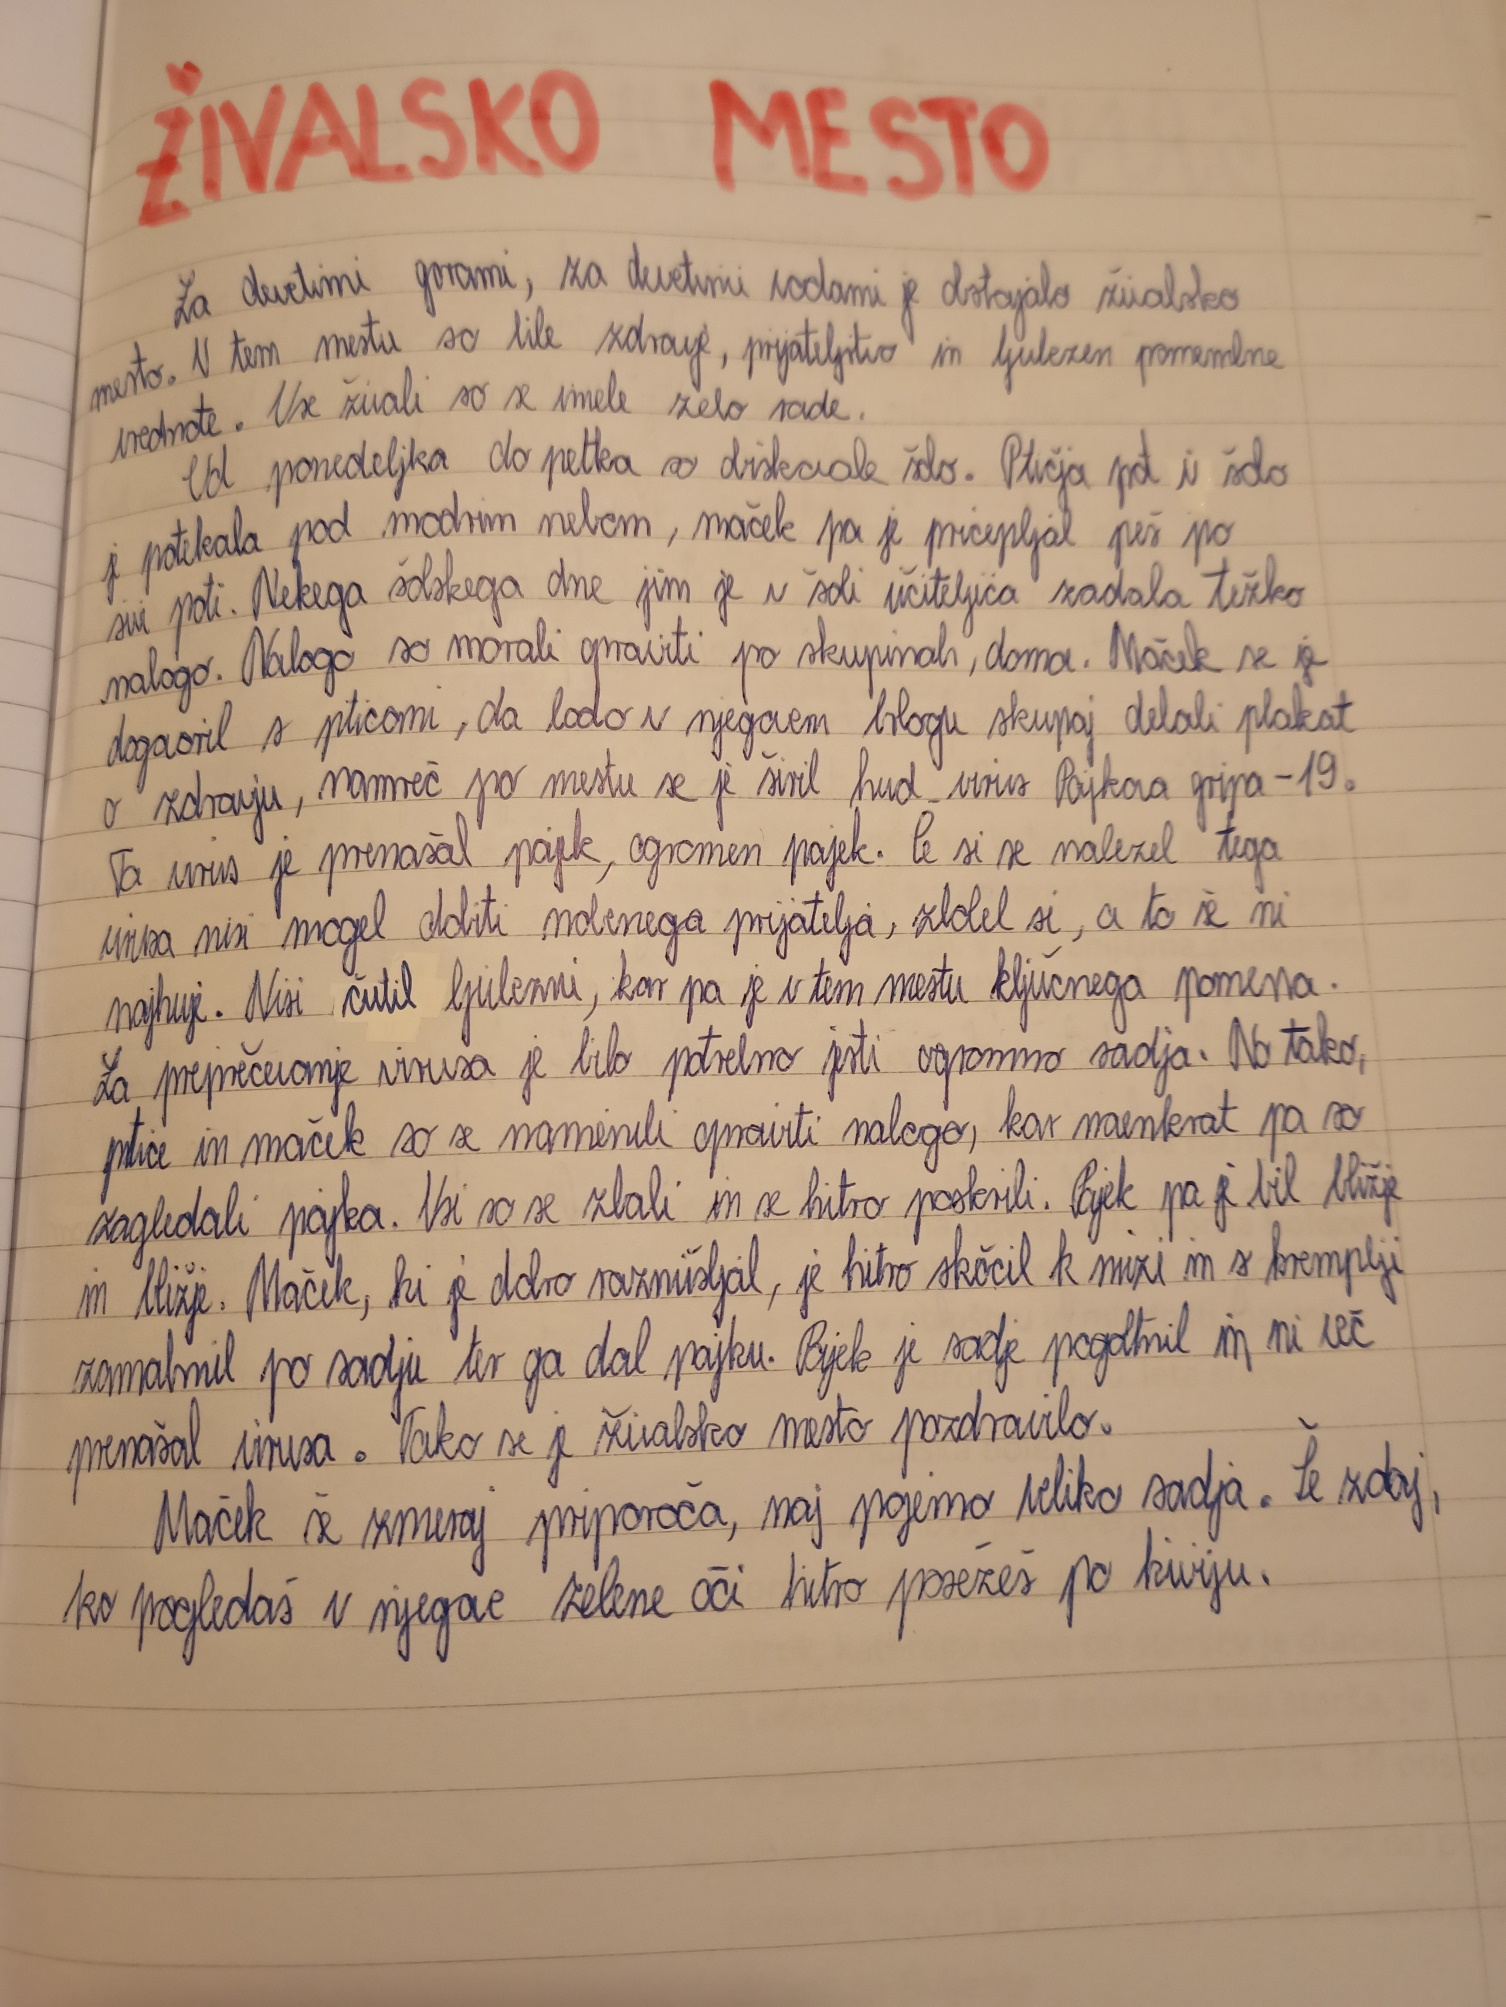 ŽIVALSKO MESTO
Za devetimi gorami, za devetimi vodami je obstajalo živalsko
mesto. V tem mestu so bile zdravje, prijateljstvo in ljubezen pomembne
vrednote. Vse živali so se imele zelo rade.
Od ponedeljka do petka so obiskovale šolo. Ptičja pot v šolo
je potekala pod modrim nebom, maček pa je pricepljal peš po
sivi poti. Nekega šolskega dne jim je v šoli učiteljica zadala težko
nalogo. Nalogo so morali opraviti po skupinah, doma. Maček se je
dogovoril s pticami, da bodo v njegovem brlogu skupaj delali plakat
o zdravju, namreč po mestu se je širil hud virus Pajkova gripa-19.
Ta virus je prenašal pajek, ogromen pajek. Če si se nalezel tega
virusa nisi mogel dobiti nobenega prijatelja, zbolel si, a to še ni
najhuje. Nisi čutil ljubezni, kar pa je v tem mestu ključnega pomena.
Za preprečevanje virusa je bilo potrebno jesti ogromno sadja. No tako,
ptice in maček so se namenili opraviti nalogo, kar naenkrat pa so
zagledali pajka. Vsi so se zbali in se hitro poskrili. Pajek pa je bil bližje
in bližje. Maček, ki je dobro razmišljal, je hitro skočil k mizi in s kremplji
zamahnil po sadju ter ga dal pajku. Pajek je sadje pogoltnil in ni več
prenašal virusa. Tako se je živalsko mesto pozdravilo.
Maček še zmeraj priporoča, naj pojemo veliko sadja. Še zdaj,
ko pogledaš v njegove zelene oči hitro posežeš po kiviju.